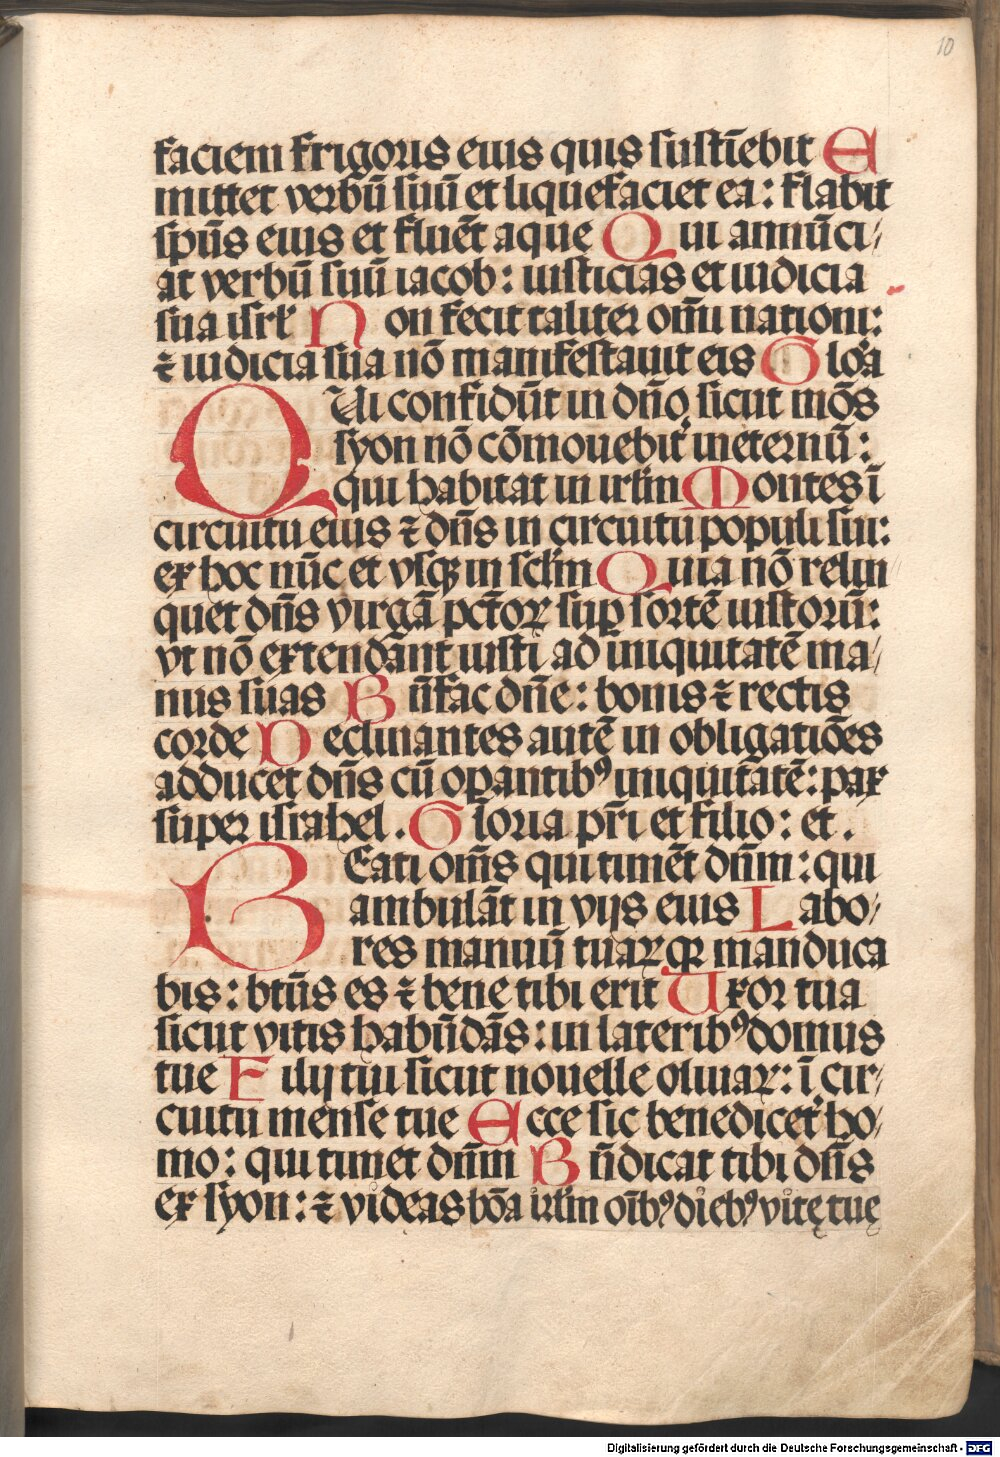 10
faciem frigoris eius quis sustīebit E
mittet verbū suū et liquefaciet ea: flabit
sp̄us eius et fluēt aque Qui annūci/
at verbū suū iacob: iusticias et iudicia
sua isrl̄ Non fecit taliter om̄i nationi:
⁊ iudicia sua nō manifestauit eis Glo͛a
QUi confidūt in dn̄o sicut mōs
syon nō cōmouebit᷑ ineternū:
qui habitat in irl̄m Montes ī
circuitu eius ⁊ dn̄s in circuitu populi sui:
ex hoc nūc et vsqꝫ in scl̄m Quia nō relin/
quet dn̄s virgā pct̄oꝝ sup̄ sortē iustorū:
vt nō extendānt iusti ad iniquitatē ma/
nus suas Bn̄fac dn̄e: bonis ⁊ rectis
corde Declinantes autē in obligatiōes
adducet dn̄s cū opantibꝰ iniquitātē: pax
super israhel. Gloria pr̄i et filio: et.
BEati om̄s qui timēt dn̄m: qui
ambulāt in vijs eius Labo/
res manuū tuaꝝ qꝛ manduca
bis: bt̄us es ⁊ bene tibi erit Uxor tua
sicut vitis habūdās: in lateribꝰ domus
tue Filij tui sicut nouelle oliuaꝝ: ī cir/
cuitu mense tue Ecce sic benedicet᷑ ho/
mo: qui timet dn̄m Bn̄dicat tibi dn̄s
ex syon: ⁊ videas bōa irl̄m oībꝰ diebꝰ vitę tuę
Digitalisierung gefördert durch die Deutsche Forschungsgemeinschaft - DFG